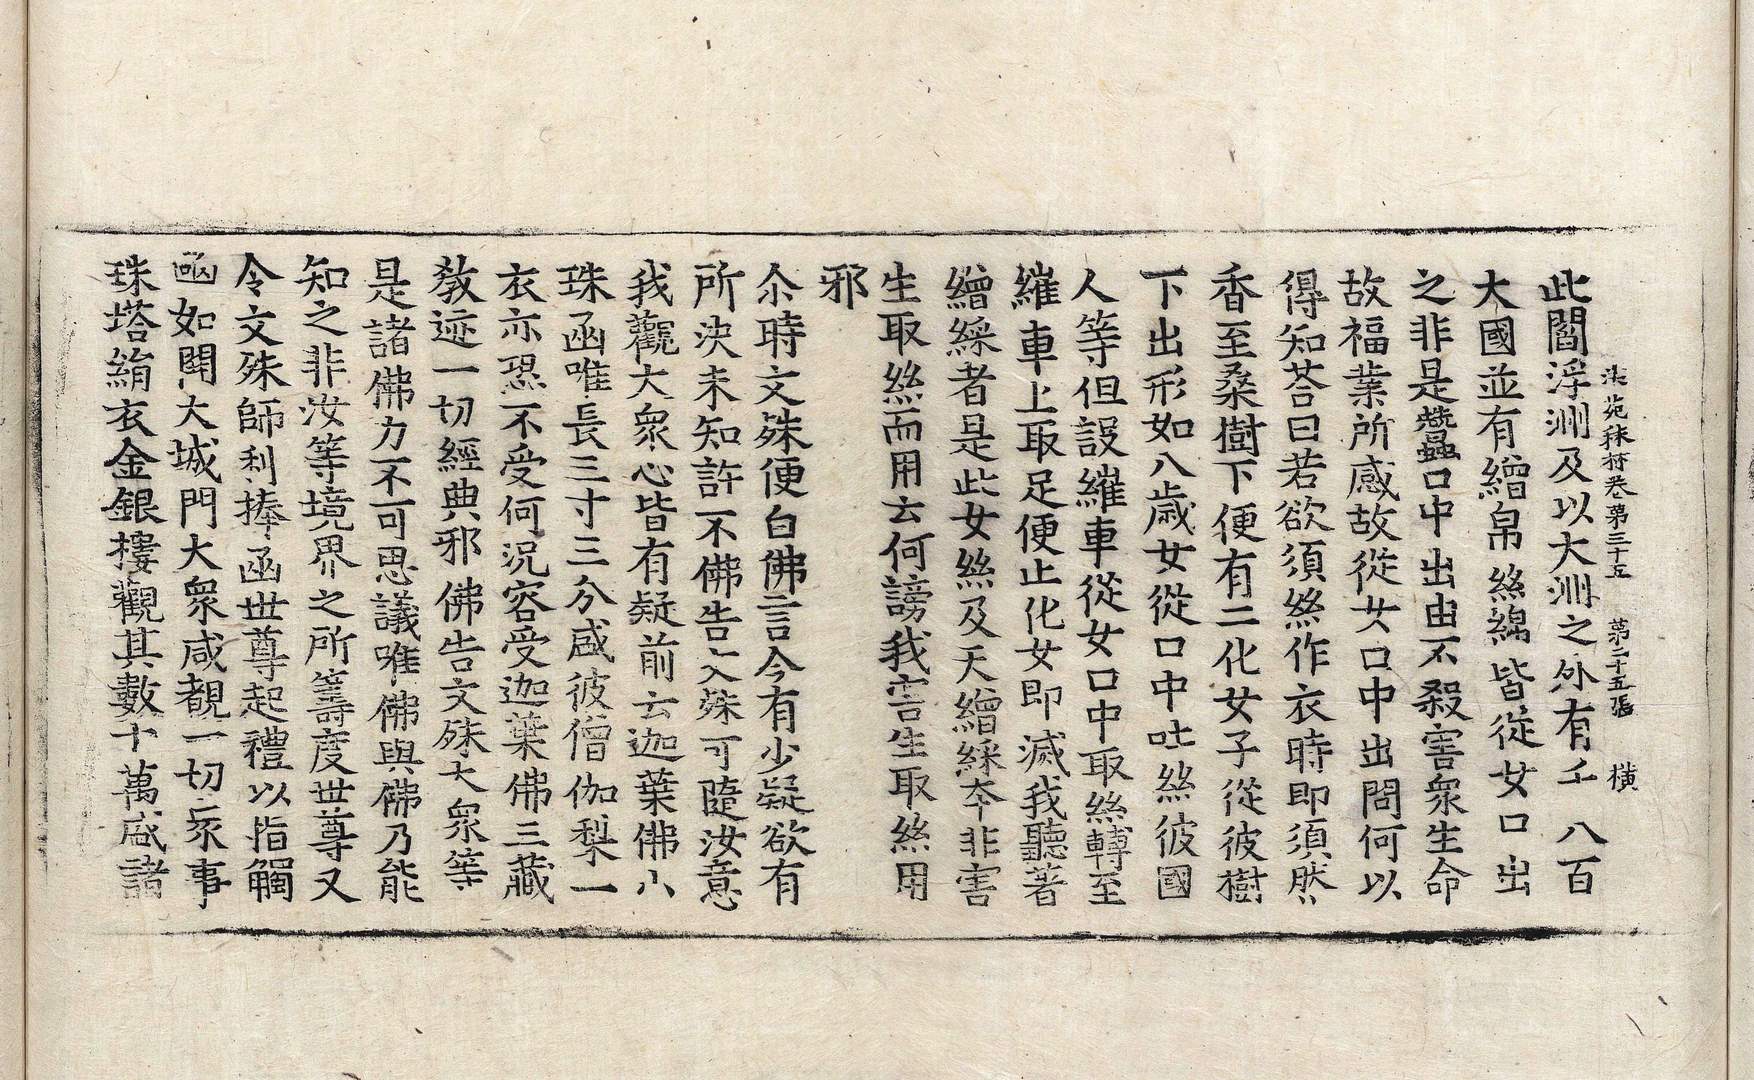 法苑珠林卷第三十五 第二十五張 橫
此閻浮洲及以大洲之外有千八百
大國並有繒帛絲綿皆從女口出
之非是蠶口中出由不殺害衆生命
故福業所感故從女口中出問何以
得知荅曰若欲須絲作衣時即須然
香至桑樹下便有二化女子從彼樹
下出形如八歲女從口中吐絲彼國
人等但設繀車從女口中取絲轉至
繀車上取足便止化女即滅我聽著
繒綵者是此女絲及天繒綵本非害
生取絲而用云何謗我害生取絲用
邪
尒時文殊便白佛言今有少疑欲有
所決未知許不佛告文殊可隨汝意
我觀大衆心皆有疑前云迦葉佛小
珠函唯長三寸三分咸彼僧伽梨一
衣亦恐不受何況容受迦葉佛三藏
教迹一切經典邪佛告文殊大衆等
是諸佛力不可思議唯佛與佛乃能
知之非汝等境界之所籌度世尊又
令文殊師利捧函世尊起禮以指觸
函如開大城門大衆咸覩一切衆事
珠塔絹衣金銀樓觀其數十萬咸諸